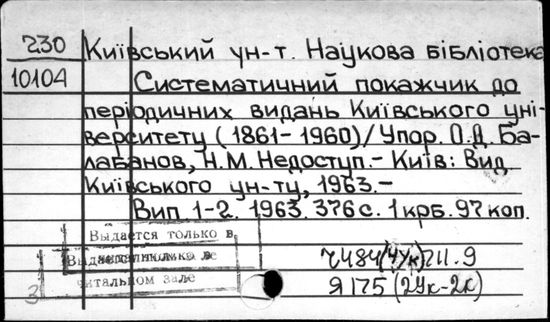 230
Київський ун-т. Наукова бібліотека
10104
Систематичний покажчик до
періодичних видань Київського уні-
верситету (1861-1960)/Упор. О.Д. Ба-
лабанов, Н.М. Недоступ.- Київ: Вид.
Київського ун-ту, 1963.-
Вип 1-2. 1963. 376 с. 1 крб. 97 коп.
Выдается только в
читальном зале
Ч484(4Ук)711.9
Я175(2Ук-2К)
3